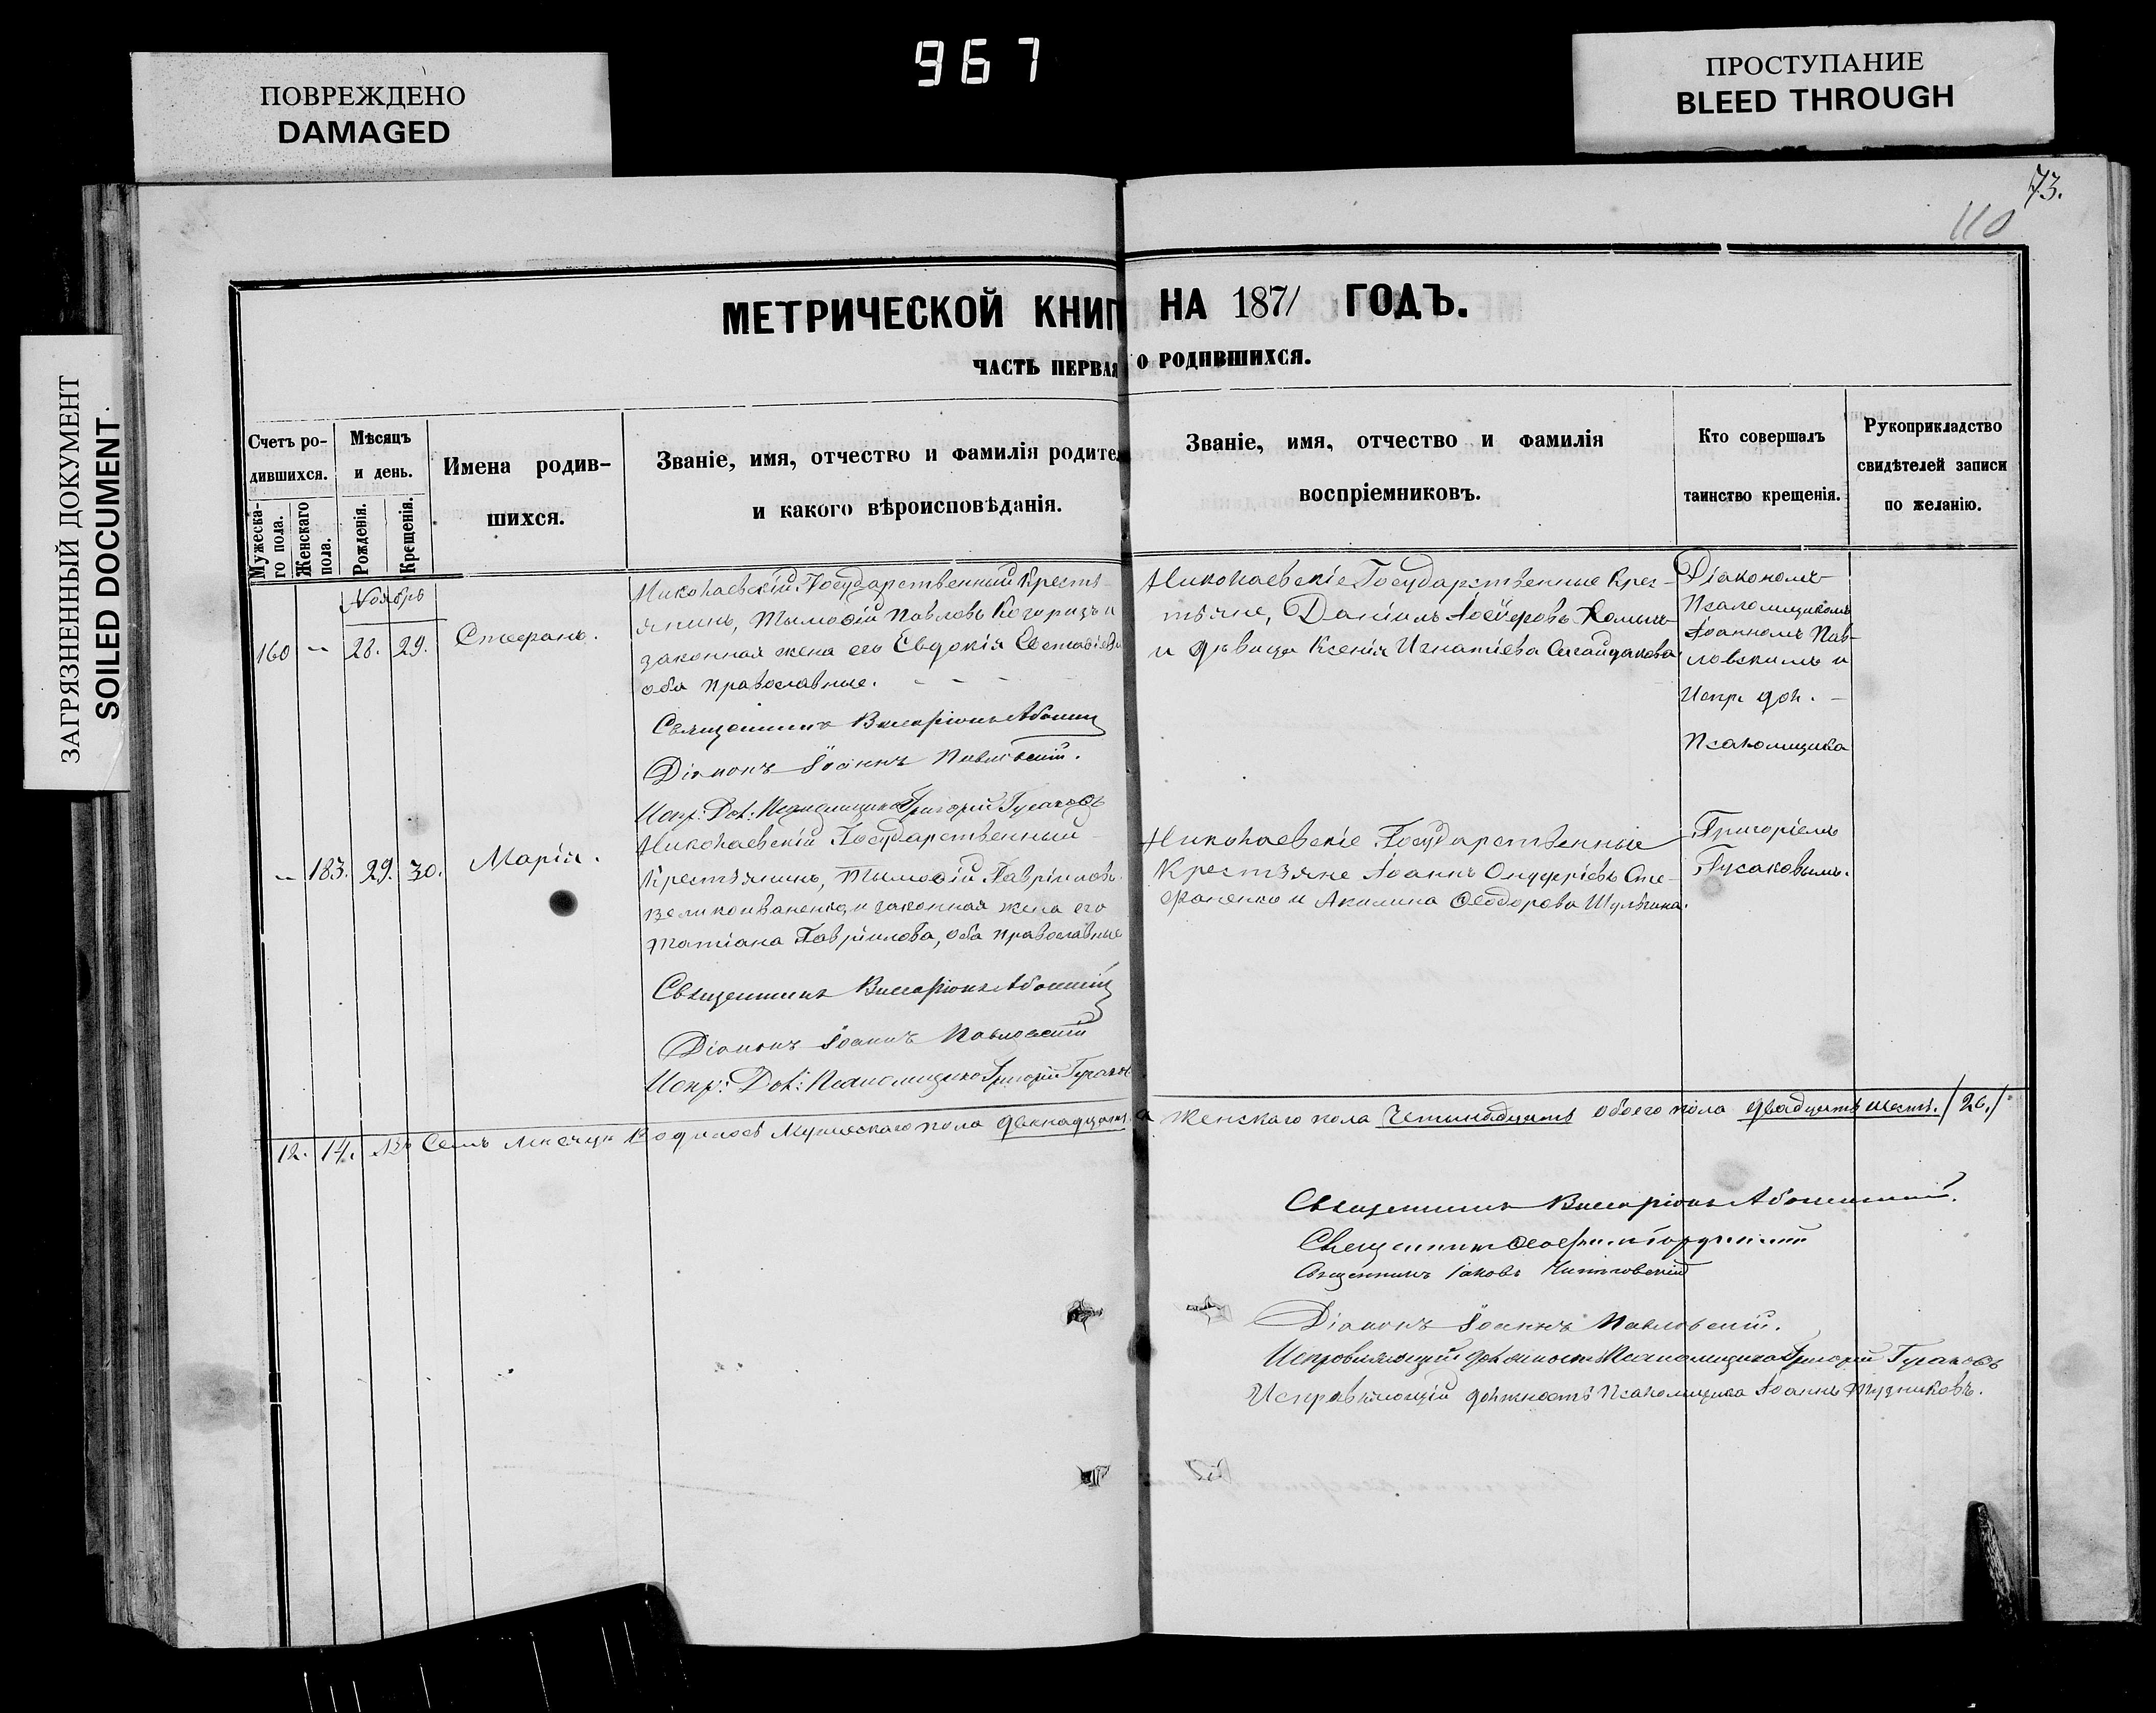 967
ПОВРЕЖДЕНО
DAMAGED
ПРОСТУПАНИЕ
BLEED THROUGH
ЗАГРЯЗНЕННЫЙ ДОКУМЕНТ
SOILED DOCUMENT.
73.
110
МЕТРИЧЕСКОЙ КНИГ НА 1871 ГОДЪ.
ЧАСТЬ ПЕРВАЯ О РОДИВШИХСЯ.
Счетъ ро-
дившихся.
Мужеска-
го пола.
Женскаго
пола.
Мѣсяцъ
и день.
Рожденія.
Крещенія.
Имена родив-
шихся.
Званіе, имя, отчество и фамилія родител
и какого вѣроисповѣданія.
Званіе, имя, отчество и фамилія
воспріемниковъ.
Кто совершалъ
таинство крещенія.
Рукоприкладство
свидѣтелей записи
по желанію.
Ноябрь
160 — 28. 29. Стефанъ.
Николаевскій Государственный Кресть-
янинъ, Тимоѳій Павловъ и
законная жена его Евдокія
оба православные.
Священникъ Виссаріонъ
Діаконъ Іоаннъ Павловскій.
Испр: Дол: Псаломщика Григорій Гусаковъ
Николаевскіе Государственные Крес-
тьяне, Даніилъ
и дѣвица Ксенія Игнатіева
Діакономъ
Іоанномъ Пав-
ловскимъ и
Испр. дол. —
Псаломщика
Григоріемъ
Гусаковымъ.
— 183. 29. 30. Марія.
Николаевскій Государственный
Крестьянинъ, Тимоѳій Гавріиловъ
и законная жена его
Татіана Гавріилова, оба православные
Священникъ Виссаріонъ
Діаконъ Іоаннъ Павловскій
Испр: Дол: Псаломщика Григорій Гусаков
Николаевскіе Государственные
Крестьяне Іоаннъ Онуфріевъ Сте-
фаненко и Акилина Ѳеодорова Шульгина.
12. 14. Въ Семъ мѣсяцѣ Родилось Мужескаго пола двѣнадцать а женскаго пола Четырнадцать обоего пола двадцать шесть. /26./
Священникъ Виссаріонъ
Священникъ
Священникъ Іаковъ
Діаконъ Іоаннъ Павловскій.
Исправляющій должность Псаломщика Григорій Гусаковъ
Исправляющій должность Псаломщика Іоаннъ